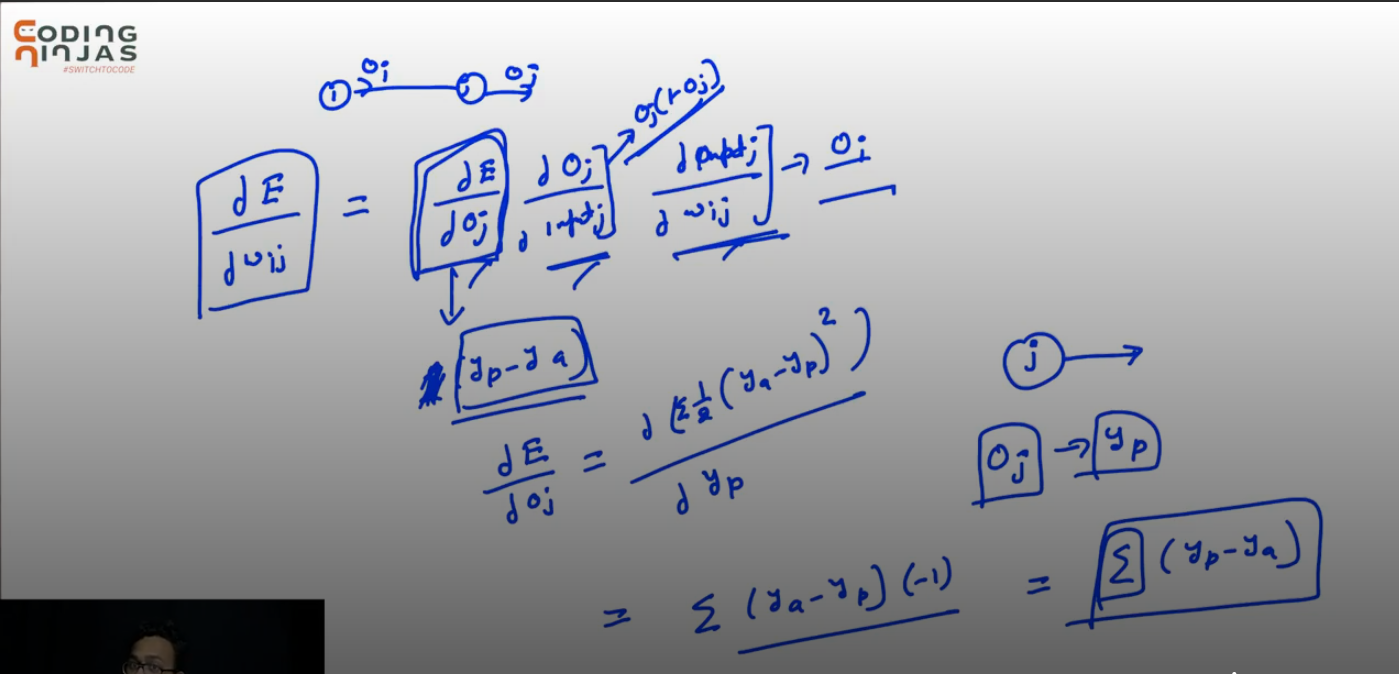 CODING
NINJAS
#SWITCHTOCODE
i Oi j Oj
dE/dwij = dE/dOj dOj/d inputj d inputj/d wij → Oi
Oj(1-Oj)
(yp-ya)
dE/dOj = d(Σ 1/2 (ya-yp)²)/d yp
j →
Oj → yp
= Σ (ya-yp)(-1) = Σ (yp-ya)